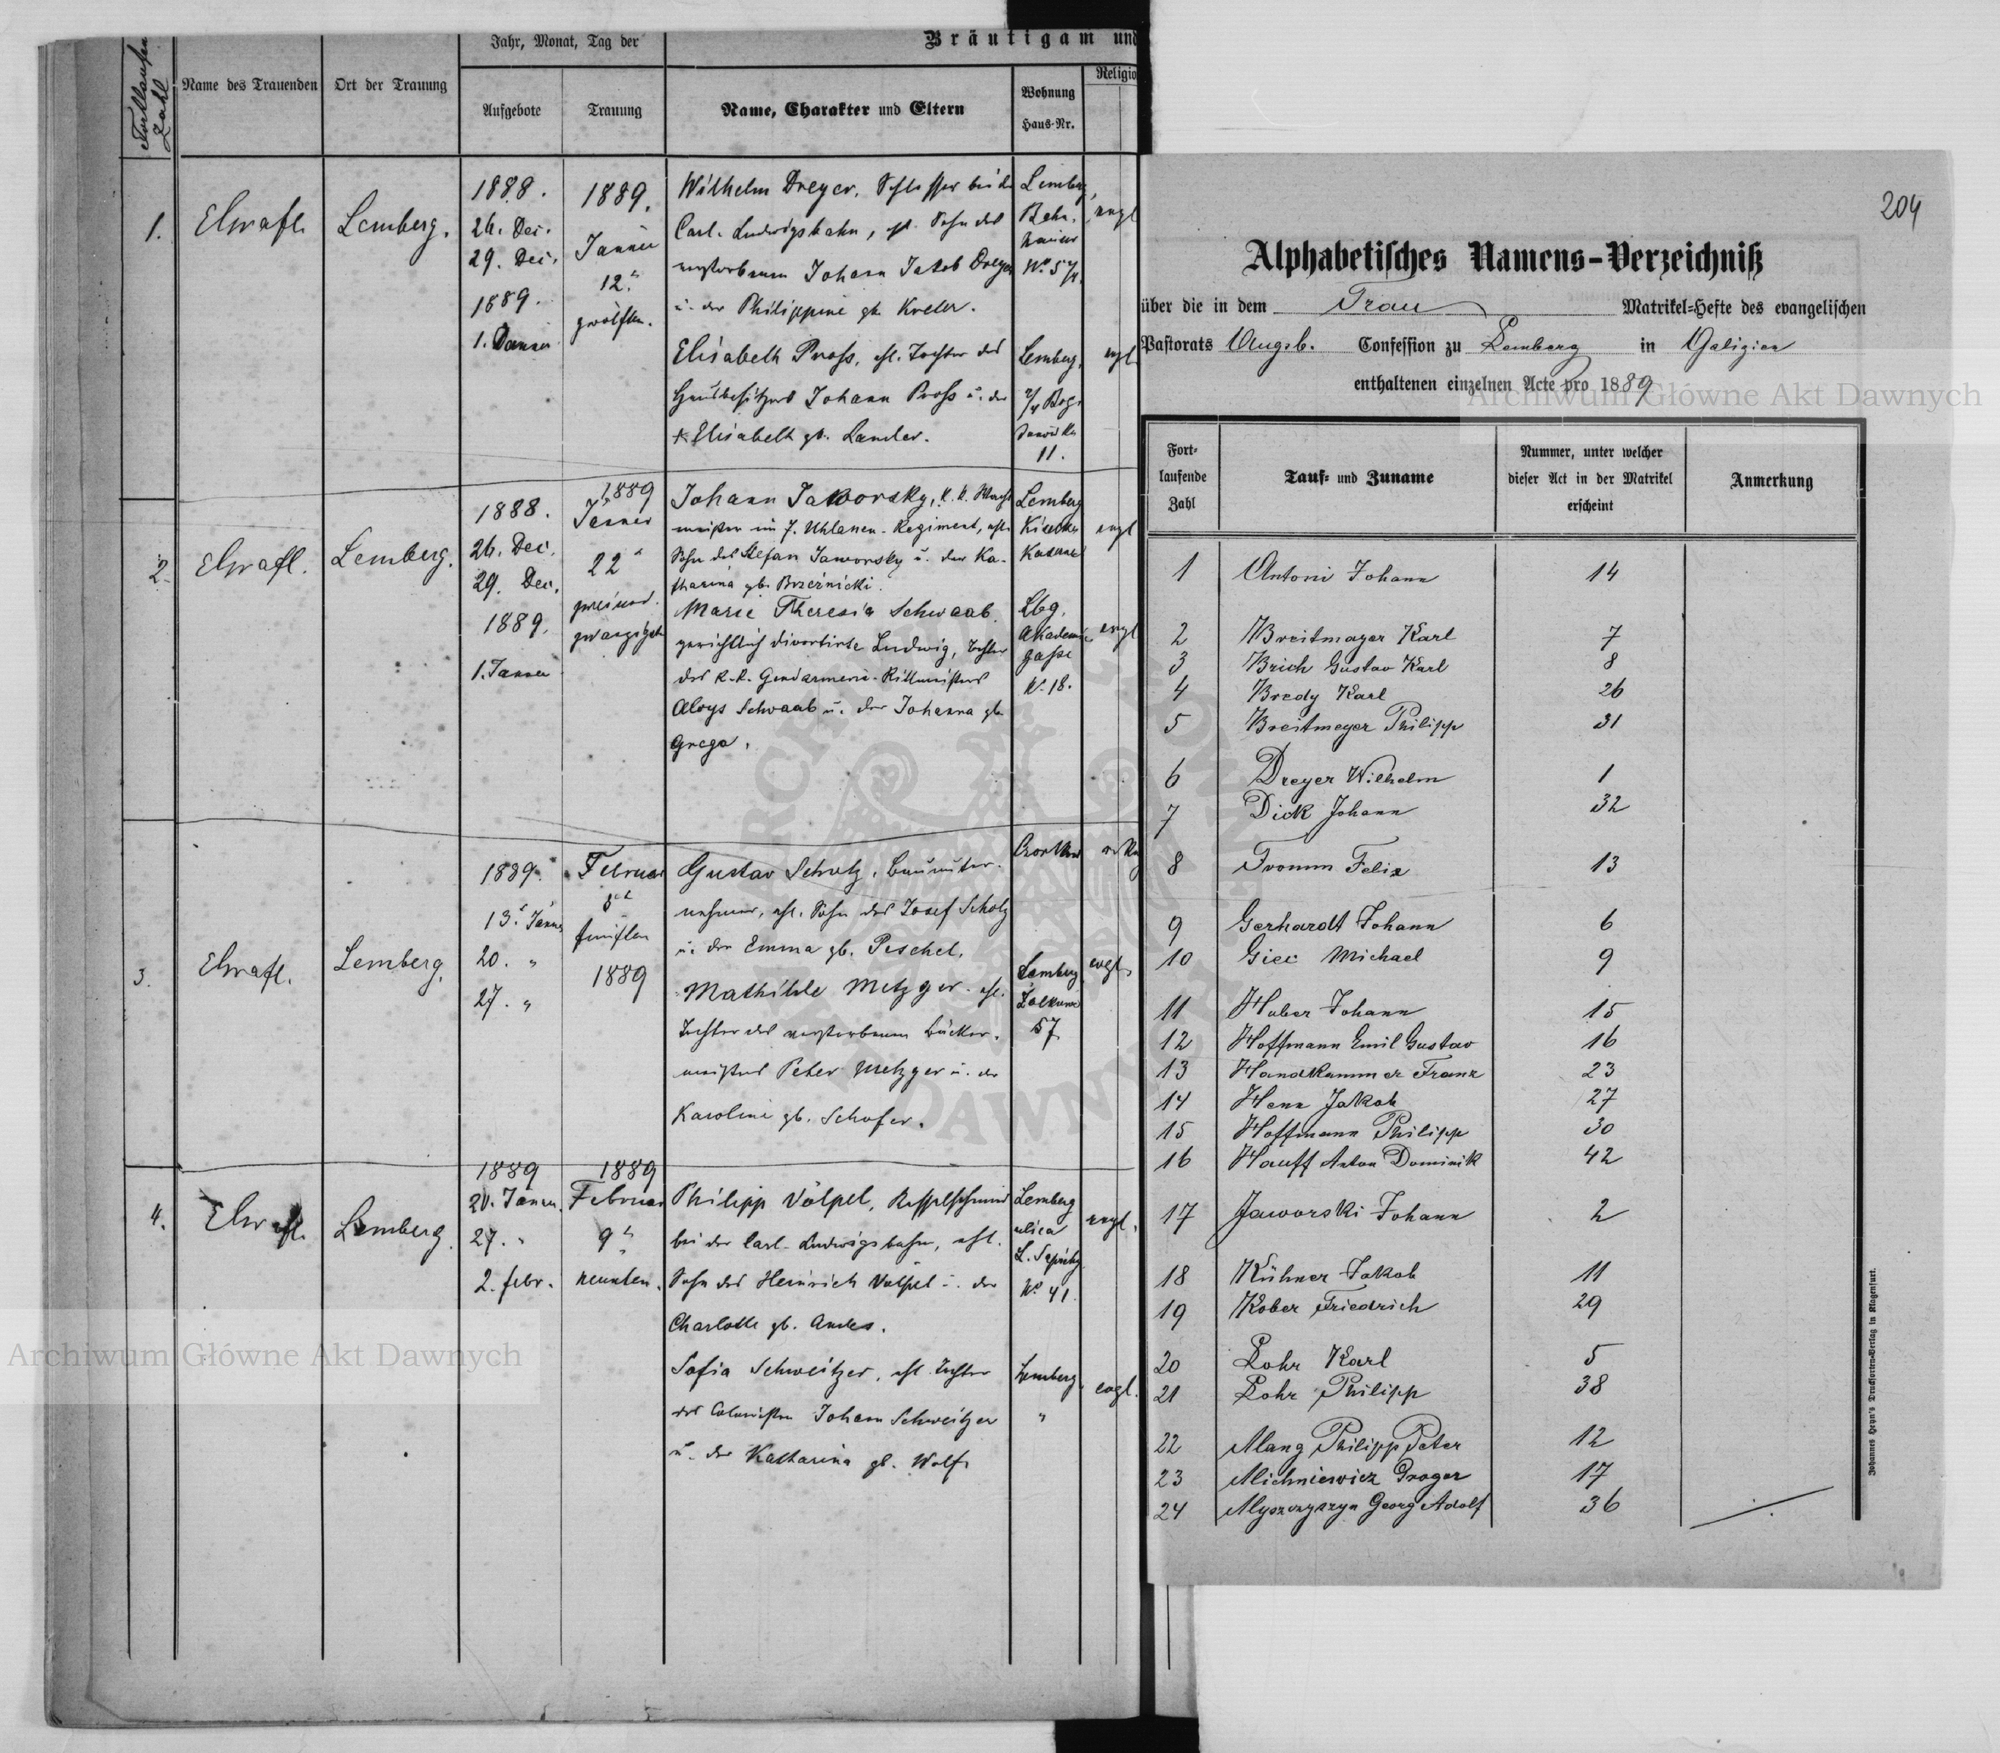 Fortlaufende Zahl
Name des Trauenden
Ort der Trauung
Jahr, Monat, Tag der
Aufgebote
Trauung
Bräutigam und
Name, Charakter und Eltern
Wohnung
Haus-Nr.
Religio
1.
Lemberg.
1888.
26. Dec.
29. Dec.
1889.
1. Janner
1889.
Janner
12.
zwölften.
Wilhelm Dreyer, Schlosser bei d.
Carl-Ludwigsbahn, ehl. Sohn des
verstorbenen Johann Jakob Dreyer
u. der Philippine gb.
Elisabeth Pross, ehl. Tochter des
Hausbesitzers Johann Pross u. der
Elisabeth gb.
Lemberg,
evgl
Lemberg,
evgl.
11.
2.
Lemberg.
1888.
26. Dec.
29. Dec.
1889.
1. Janner
1889
Janner
22
zweiund
zwanzigsten
Johann Jaworsky, k. k. Wacht
meister im 7. Uhlanen-Regiment, ehl.
Sohn des Stefan Jaworsky u. der Ka-
tharina gb. Brzeźnicki.
Marie Theresia Schwaab
gerichtlich divortirte Ludwig, Tochter
des k.k. Gendarmerie-Rittmeisters
Aloys Schwaab u. der Johanna gb.
Lemberg
evgl
Lbg.
Akademie
gasse
N. 18.
evgl
3.
Lemberg.
1889.
13. Janner
20. "
27. "
Februar
5
fünften
1889
Gustav Scholz, Bauunter-
nehmer, ehl. Sohn des Josef Scholz
u. der Emma gb. Peschel.
Mathilde Metzger ehl.
Tochter des verstorbenen Bäcker-
meisters Peter Metzger u. der
Karoline gb. Schofer.
Lemberg
57
evgl.
4.
Lemberg.
1889
20. Janner.
27. "
2. Febr.
1889
Februar
9
neunten.
Philipp Völpel, Kesselschmied
bei der Carl-Ludwigsbahn, ehl.
Sohn des Heinrich Völpel u. der
Charlotte gb. Andes.
Sofia Schweitzer, ehl. Tochter
des Colonisten Johann Schweitzer
u. der Katharina gb. Wolf.
Lemberg
ulica
No 41.
evgl.
Lemberg.
"
evgl.
204
Alphabetisches Namens-Verzeichniß
über die in dem Trau Matrikel-Hefte des evangelischen
Pastorats Augsb. Confession zu Lemberg in Galizien
enthaltenen einzelnen Acte pro 1889
Fort-
laufende
Zahl
Tauf- und Zuname
Nummer, unter welcher
dieser Act in der Matrikel
erscheint
Anmerkung
1 Antoni Johann 14
2 Breitmayer Karl 7
3 Brich Gustav Karl 8
4 Bredy Karl 26
5 Breitmeyer Philipp 31
6 Dreyer Wilhelm 1
7 Dick Johann 32
8 Fromm Felix 13
9 Gerhardt Johann 6
10 Giec Michael 9
11 Huber Johann 15
12 Hoffmann Emil Gustav 16
13 Handkammer Franz 23
14 Henn Jakob 27
15 Hoffmann Philipp 30
16 Hauff Anton Dominik 42
17 Jaworski Johann 2
18 Kühner Jakob 11
19 Kober Friedrich 29
20 Lohr Karl 5
21 Lohr Philipp 38
22 Mang Philipp Peter 12
23 Michniewicz Gregor 17
24 Myszczyszyn Georg Adolf 36
Johannes Heyn's Drucksorten-Verlag in Klagenfurt.
Archiwum Główne Akt Dawnych
Archiwum Główne Akt Dawnych